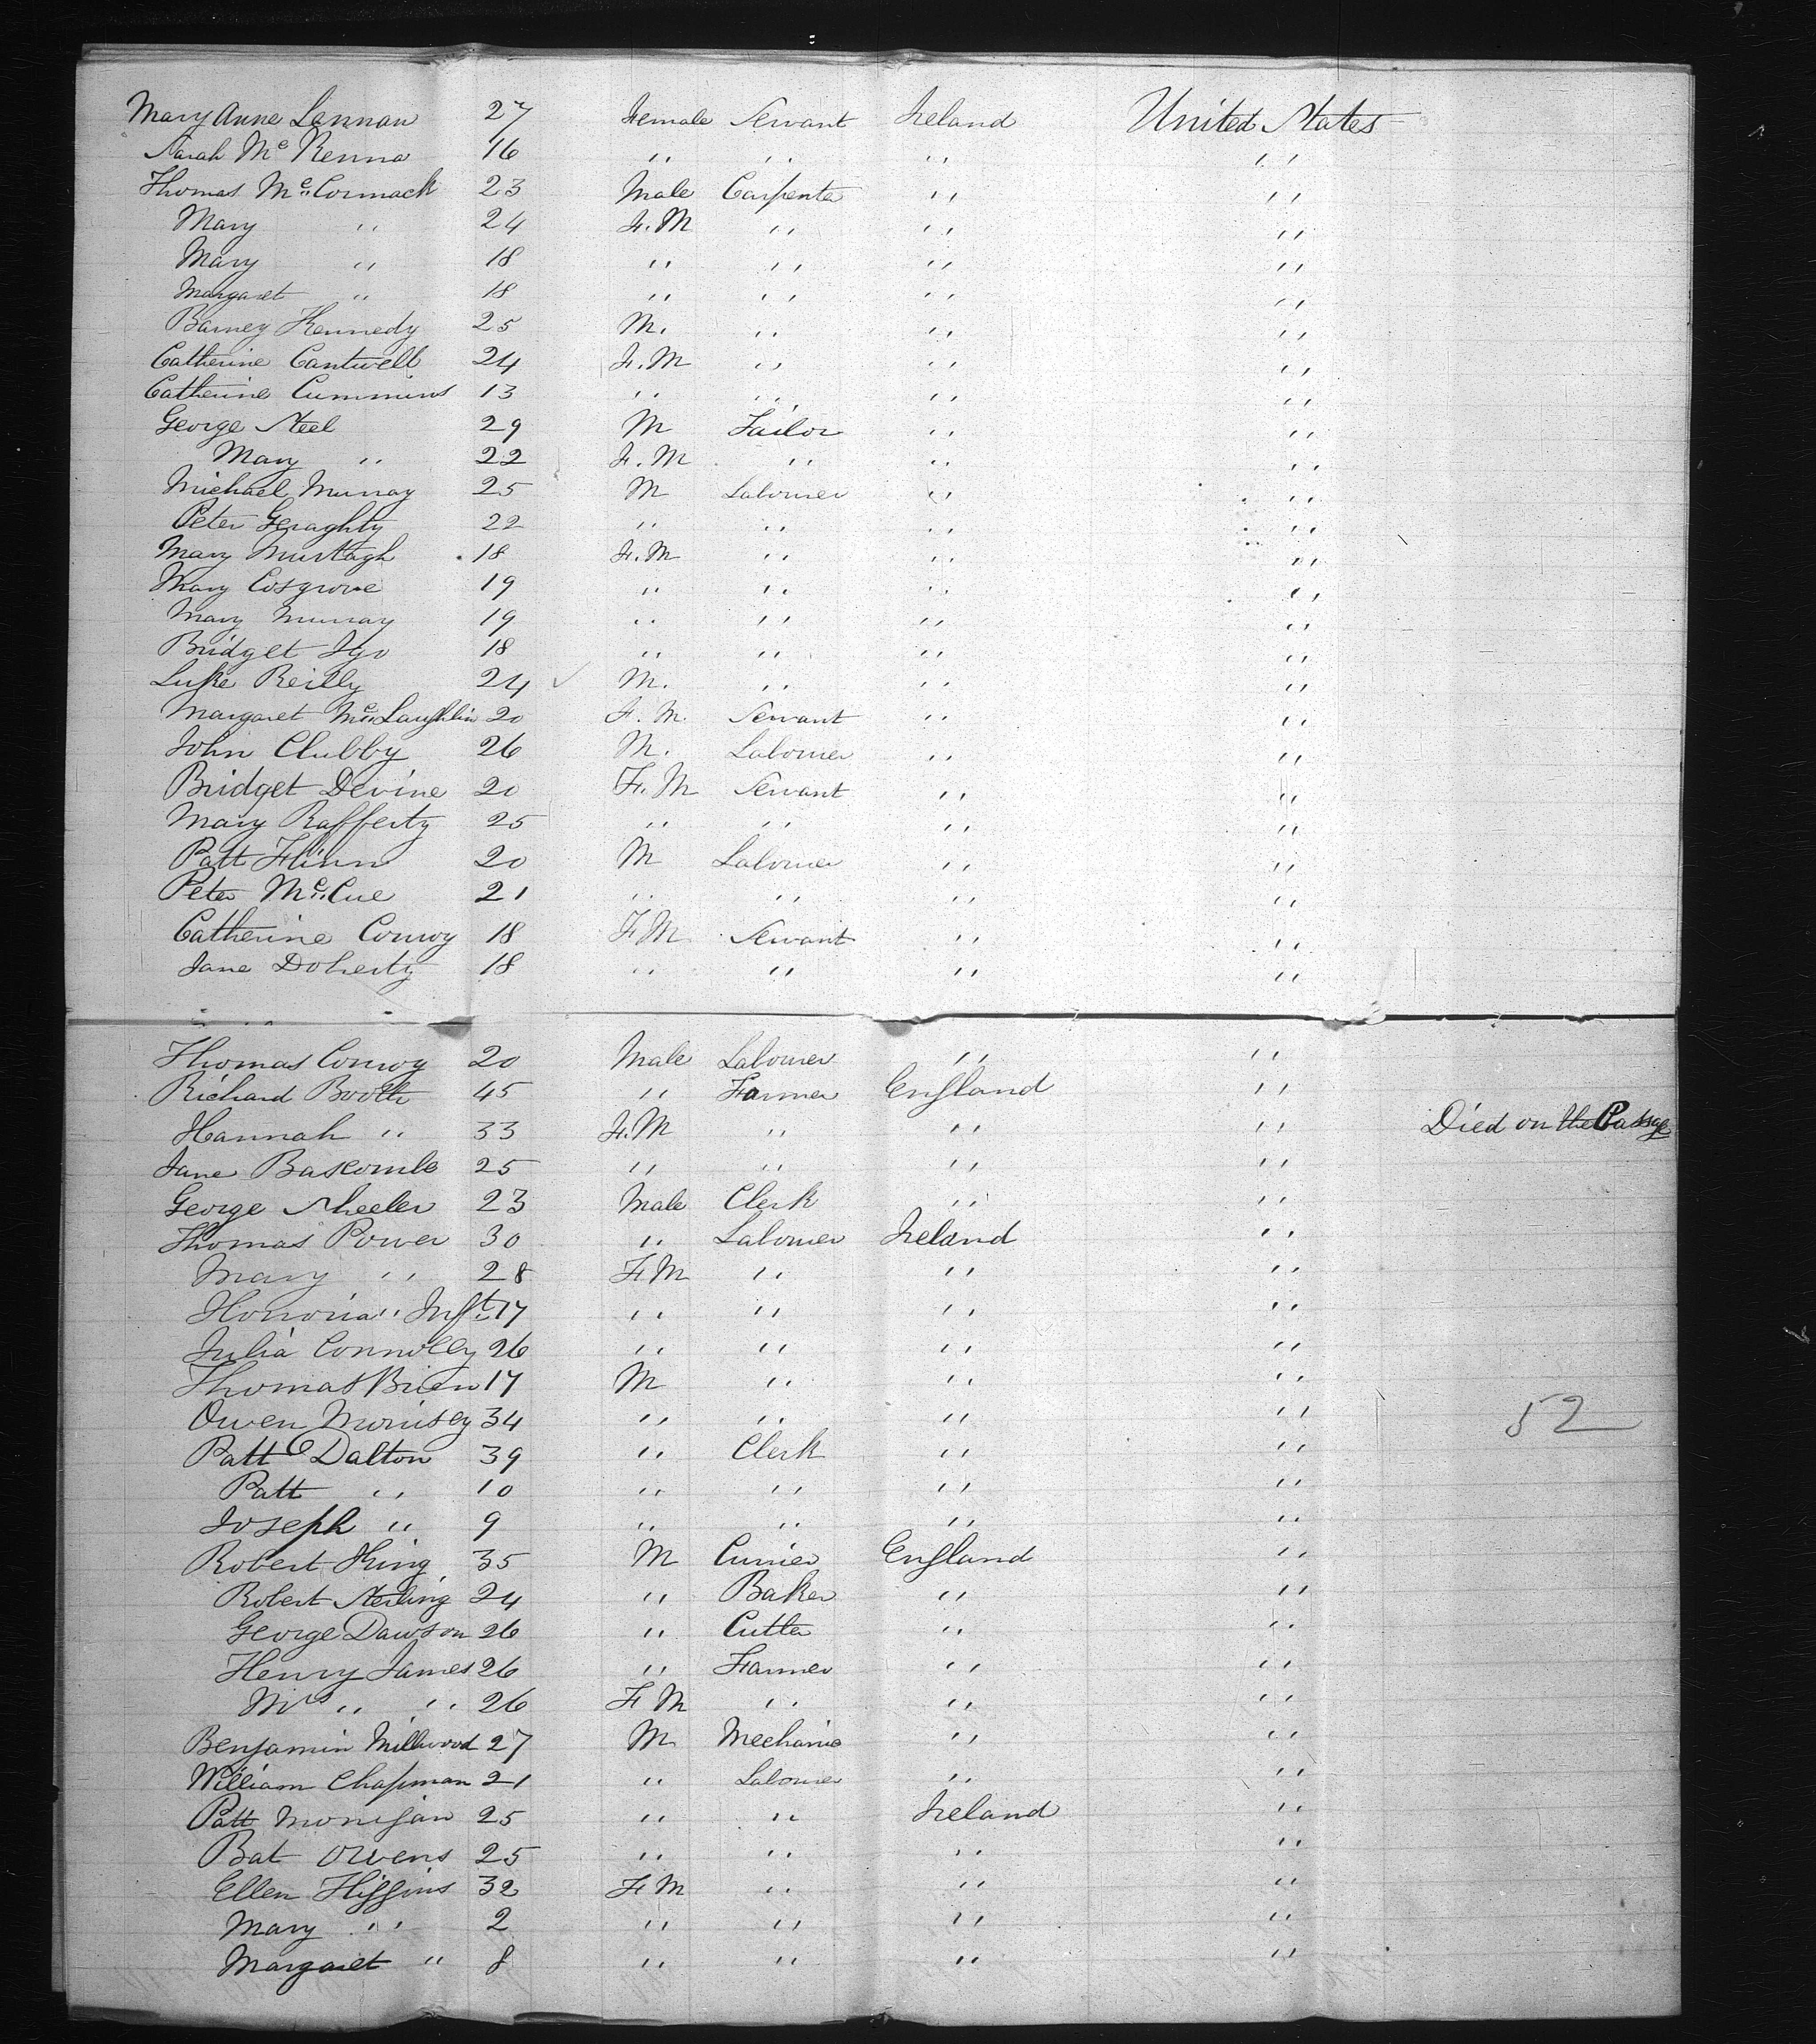 Mary Anne Lennan 27 Female Servant Ireland United States
Sarah McKenna 16 " " " "
Thomas McCormack 23 Male Carpenter " "
Mary " 24 F.M " " "
Mary " 18 " " " "
Margaret " 18 " " " "
Barney Kennedy 25 M. " " "
Catherine Cantwell 24 F.M " " "
Catherine Cummins 13 " " " "
George Steel 29 M Tailor " "
Mary " 22 F.M " " "
Michael Murray 25 M Labourer " "
Peter Geraghty 22 " " " "
Mary Murtagh 18 F.M " " "
Mary Cosgrove 19 " " " "
Mary Murray 19 " " " "
Bridget Igo 18 " " " "
Luke Reilly 24 M. " " "
Margaret McLaughlin 20 F.M. Servant " "
John Clubby 26 M. Labourer " "
Bridget Devine 20 F.M Servant " "
Mary Rafferty 25 " " " "
Patt Flinn 20 M Labourer " "
Peter McCue 21 " " " "
Catherine Conroy 18 F M Servant " "
Jane Doherty 18 " " " "
Thomas Conroy 20 Male Labourer " "
Richard Booth 45 " Farmer England "
Hannah " 33 F.M " " " Died on the Passage
Jane Bascomb 25 " " " "
George Sheeler 23 Male Clerk " "
Thomas Power 30 " Labourer Ireland "
Mary " 28 F.M " " "
Honoria " Inft 17 " " " "
Julia Connolly 26 " " " "
Thomas Brien 17 M " " "
Owen Morrisey 34 " " " "
Patt Dalton 39 " Clerk " "
Patt " 10 " " " "
Joseph " 9 " " " "
Robert King 35 M Currier England "
Robert Sterling 24 " Baker " "
George Dawson 26 " Cutler " "
Henry James 26 " Farmer " "
Mrs " " 26 F M " " "
Benjamin Millwood 27 M Mechanic " "
William Chapman 21 " Labourer " "
Patt Monigan 25 " " Ireland "
Bat Owens 25 " " " "
Ellen Higgins 32 F M " " "
Mary " 2 " " " "
Margaret " 8 " " " "
52